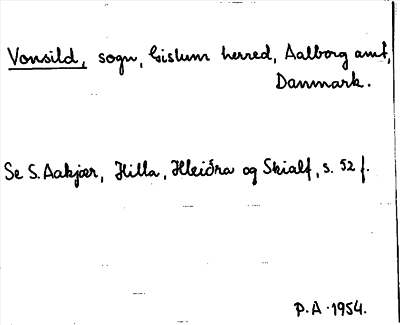 Vonsild, sogn, Gislum herred, Aalborg amt,
Danmark.
Se S. Aakjær, Hilla, Hleiðra og Skialf, s. 52 f.
P.A. 1954.